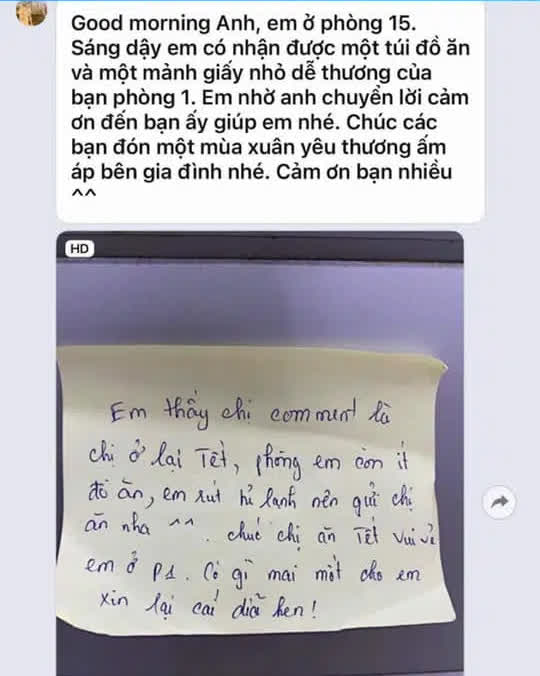 Good morning Anh, em ở phòng 15.
Sáng dậy em có nhận được một túi đồ ăn
và một mảnh giấy nhỏ dễ thương của
bạn phòng 1. Em nhờ anh chuyển lời cảm
ơn đến bạn ấy giúp em nhé. Chúc các
bạn đón một mùa xuân yêu thương ấm
áp bên gia đình nhé. Cảm ơn bạn nhiều
^^
HD
Em thấy chị comment là
chị ở lại Tết, phòng em còn ít
đồ ăn, em rút tủ lạnh nên gửi chị
ăn nha ^^. chúc chị ăn Tết vui vẻ
em ở P1. Có gì mai mốt cho em
xin lại cái dĩa hen!